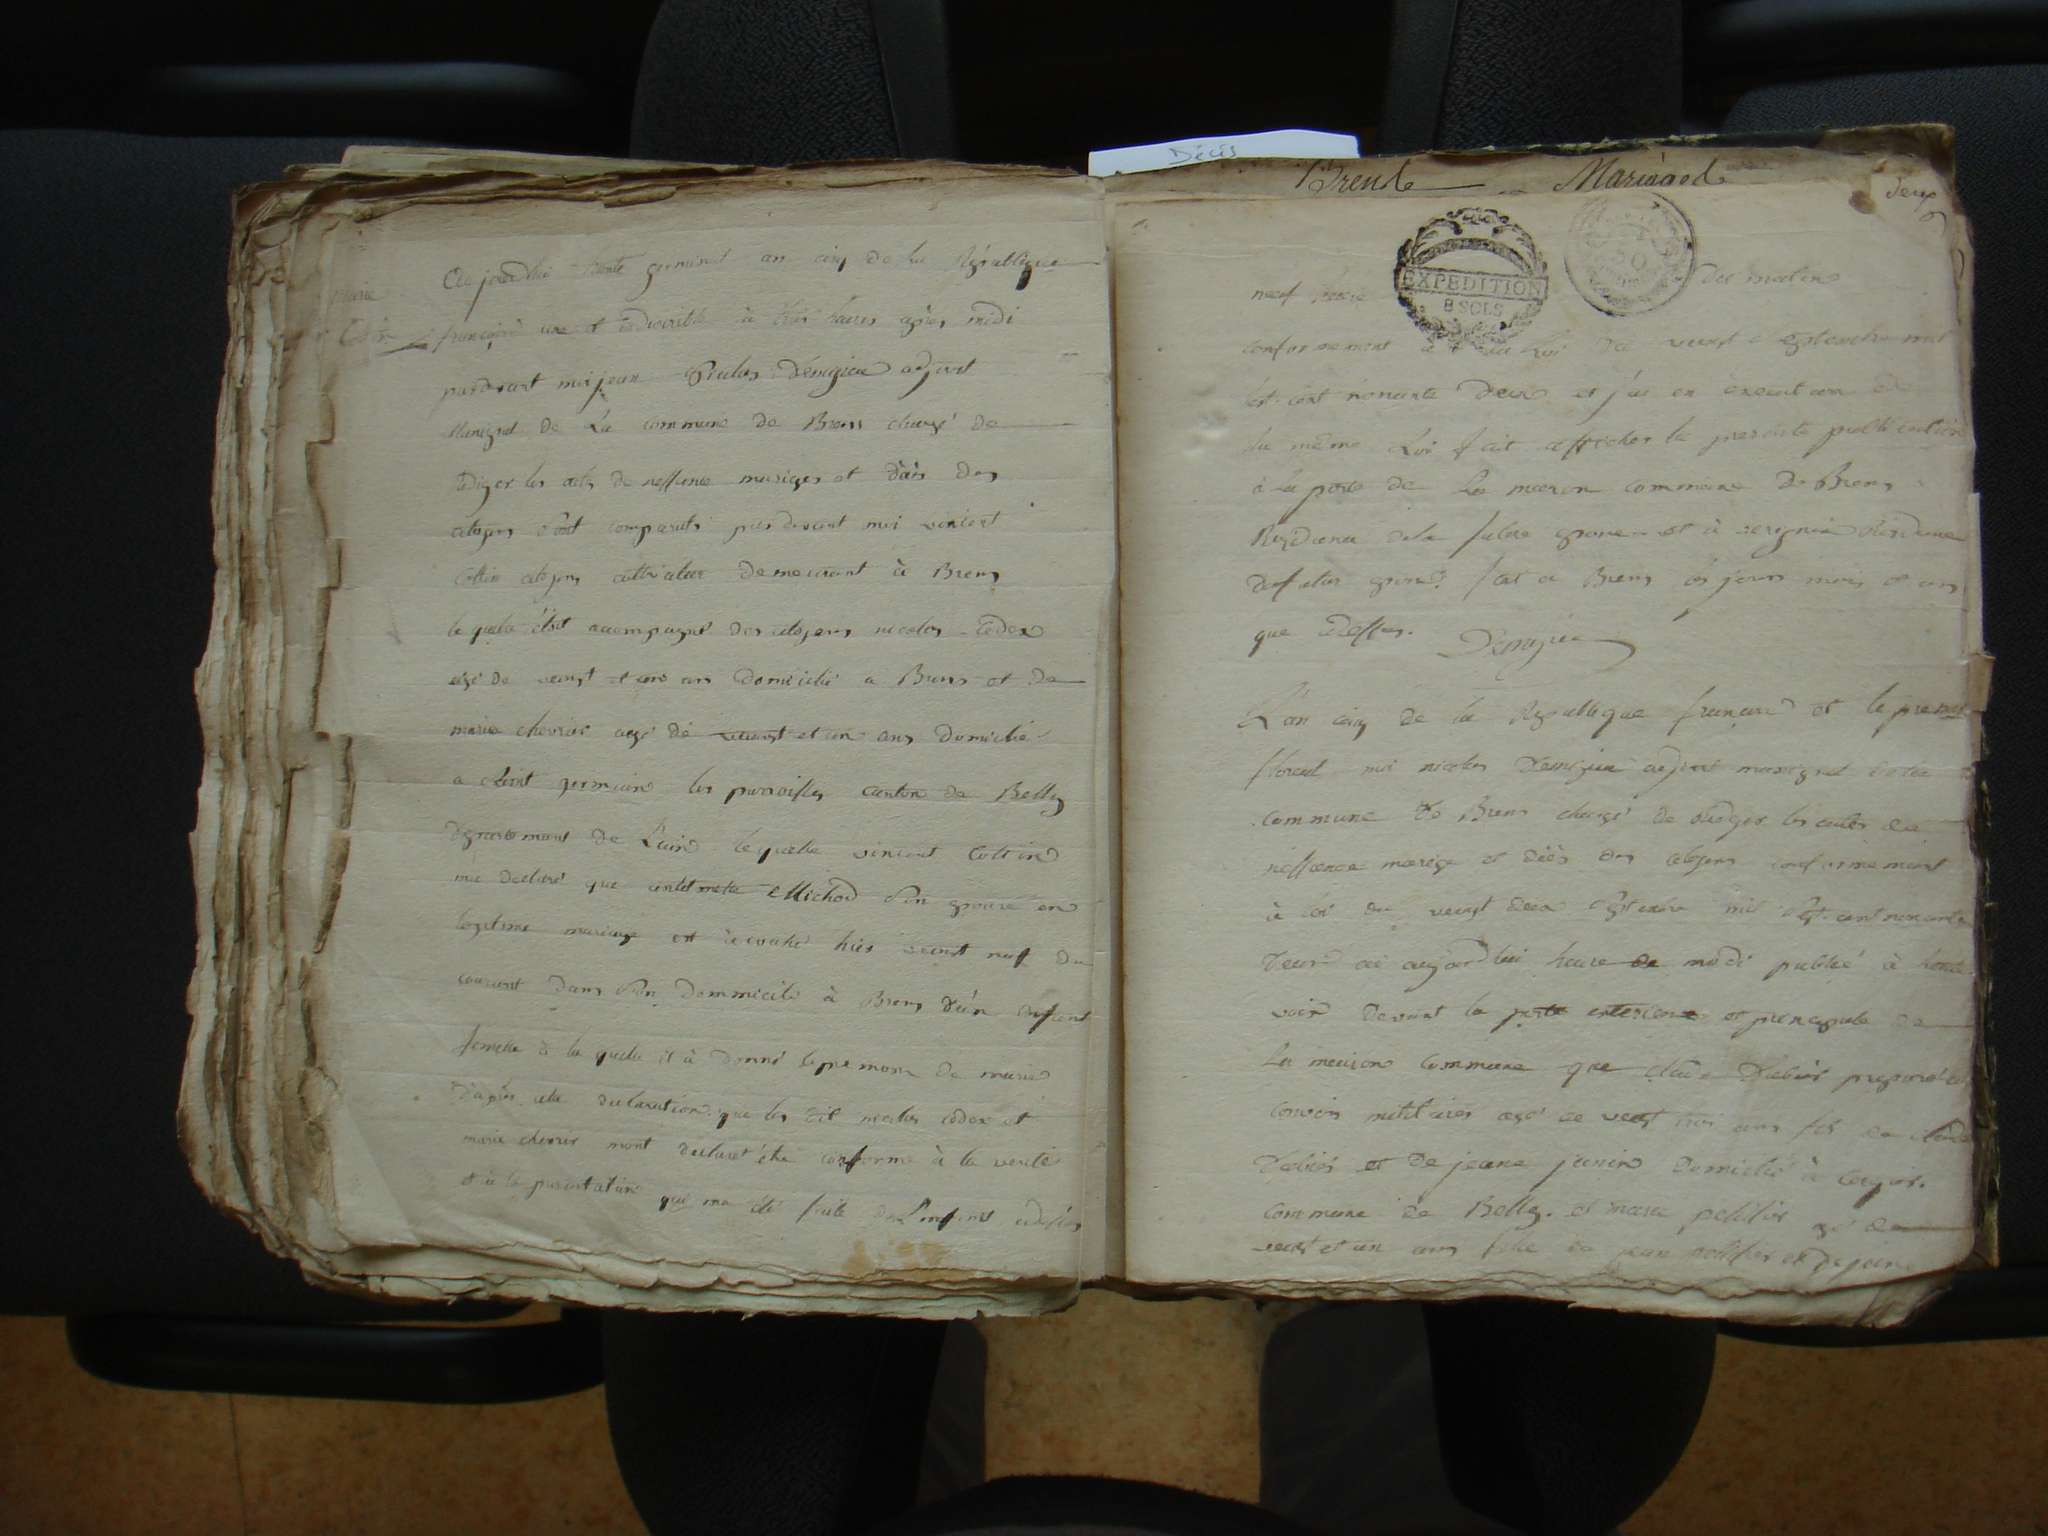 Décis
marie
Cottin
Ce jourdhui trente germinal an cinq de la République
française une et indivisible à trois heures après midi
pardevant moi jean Demigieu adjoint
Municipal de La commune de Brens chargé de
rédiger les actes de nessance mariages et décès des
citoyens s'est comparuts pardevant moi vincent
Cottin citoyens cultivateur demeurant à Brens
le quelle étoit acompagné des citoyens nicolas Codex
agé de veingt et ans domicilié a Brens et de
marie chevrier agé de veingt et un ans domicilié
a Saint germain les parroisses canton de Belley
département de Lain le quelle vincent Cottin
ma déclaré que Michod son epouse en
legitime mariage est acouché hier veingt neuf du
courant dans son dommicile à Brens d'un enfant
femelle à la quelle il à donné le prenom de marie
d'après cete declaration que les dit nicolas codex et
marie chevrier mont declaret être conforme à la verité
et à la presentation qui ma été faite de L'enfant cidessus
Brens Mariage
deux
EXPEDITION
8 SOLS
neuf heure des matin
conformement à la Loi du veingt septembre mil
sept cent nonante deux et j'ai en execution de
la même Loi fait afficher la presente publication
à la porte de La maison commune de Brens
Residence dela future epouse et à Residence
du futur epoux fait a Brens les jours mois et an
que dessus. Demigieu
L'an cinq de la Republique française et le premier
floreal moi nicolas Demigieu adjoint municipal de la
commune de Brens chargé de rediger les actes de
nessance mariage et décès des citoyens conformement
à loi du veingt deux septembre mil sept cent nonante
deux ai aujordhui heure de midi publié à haute
voix devant la porte exterieure et principale de
La meison commune que claude preposé aux
convois militaires agé de veingt trois ans fils de claude
et de jeane janin domicilié à
commune de Belley et marie petitier agé de
veingt et un ans fille de jean petitier et de jeane